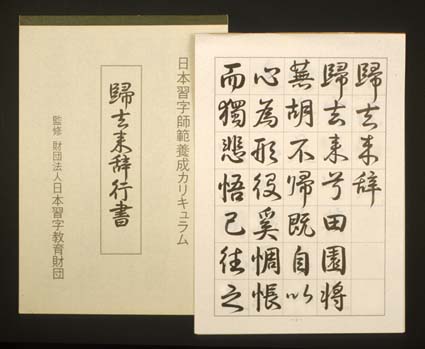 日本習字師範養成カリキュラム
歸去来辞行書
監修 財団法人日本習字教育財団
歸去来辞
歸去来兮田園将
蕪胡不帰既自以
心為形役奚惆悵
而獨悲悟已往之